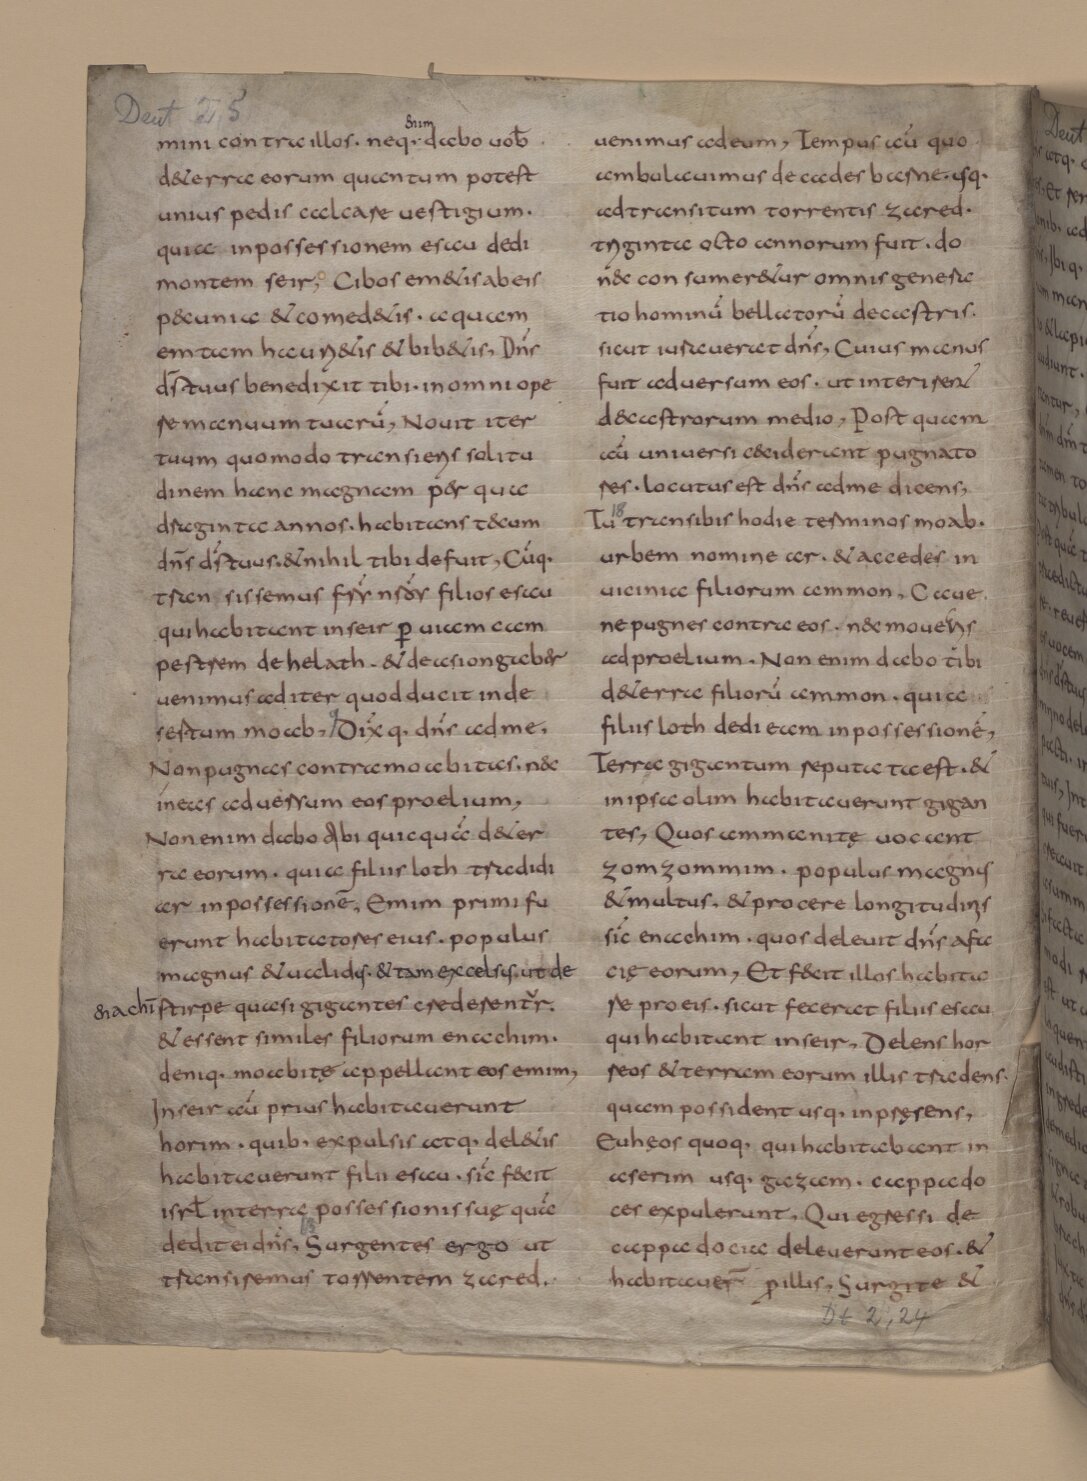 Deut II, 5
enim
mini contra illos. neq; dabo vob̄
de terra eorum quantum potest
unius pedis calcare vestigium.
quia in possessionem esau dedi
montem seir, Cibos emetis ab eis
pecunia et comedetis. aquam
emtam haurietis et bibetis, Dn̄s
ds̄ tuus benedixit tibi. in omni ope
re manuum tuarū, Novit iter
tuum quomodo transiens solitu
dinem hanc magnam per qua
draginta annos. habitans tecum
dn̄s ds̄ tuus. et nihil tibi defuit, Cūq.
transissemus frs̄ nrōs filios esau
qui habitant in seir p viam cam
pestrem de helath. et de asiongaber
venimus ad iter quod ducit in de
sertum moab, 9 Dixq. dn̄s ad me,
Non pugnes contra moabitas. nec
ineas adversum eos proelium,
Non enim dabo tibi quicquā de ter
ra eorum. quia filiis loth tradidi
ar in possessionē, Emim primi fu
erunt habitatores eius. populus
magnus et validus. et tam excelsus. ut de
enachī stirpe quasi gigantes crederentr̄.
et essent similes filiorum enachim.
deniq. moabitę appellant eos emim,
In seir aū prius habitaverunt
horim. quib. expulsis atq. deletis
habitaverunt filii esau. sic̄ fecit
isrl̄ in terra possessionis suę quā
dedit ei dn̄s, 13 Surgentes ergo ut
transiremus torrentem zared.
venimus ad eum, Tempus aū quo
ambulavimus de cades barne. usq.
ad transitum torrentis zared.
triginta octo annorum fuit. do
nec consumeretur omnis genera
tio hominū bellatorū de castris.
sicut iuraverat dn̄s, Cuius manus
fuit adversum eos. ut interirent
de castrorum medio, Post quam
aū universi ceciderant pugnato
res. locutus est dn̄s ad me dicens,
18 Tu transibis hodie terminos moab.
urbem nomine ar. et accedes in
vicinia filiorum ammon, Cave
ne pugnes contra eos. nec moveris
ad proelium. Non enim dabo tibi
de terra filiorū ammon. quia
filiis loth dedi eam in possessionē,
Terra gigantum reputata est. et
in ipsa olim habitaverunt gigan
tes, Quos ammanitę vocant
zomzommim. populus magnus
et multus, et procere longitudinis
sic̄ enachim. quos delevit dn̄s a fa
cię eorum, Et fecit illos habita
re pro eis. sicut fecerat filiis esau
qui habitant in seir, Delens hor
reos et terram eorum illis tradens.
quam possident usq. in pręsens,
Euhęos quoq. qui habitabant in
aserim usq. gazam. cappado
ces expulerunt, Qui egressi de
cappadocia deleverunt eos. et
habitaver̄ p illis, Surgite et
Dt 2, 24